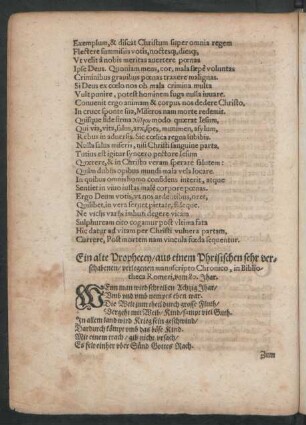 Exemplum, & discat Christum super omnia regem
Flectere summissis votis, noctesq; diesq;
Ut velit à nobis meritas avertere pœnas
Ipse Deus. Quoniam mens, cor, mala sæpè voluntas
Criminibus gravibus pœnas traxere malignas.
Si Deus ex cœlo nos ob mala crimina multa
Vult punire, potest hominem fuga nulla iuvare.
Convenit ergo animam & corpus nos dedere Christo,
In cruce sponte suo, Miseros nam morte redemit.
Quisque fide firma modo quærat Iesum,
Qui via, vita, salus, arx, spes, munimen, asylum,
Rebus in adversis. Sic coelica regna subibis.
Nulla salus miseris, nisi Christi sanguine parta,
Tutius est igitur syncero pectore Iesum
Quærere, & in Christo veram sperare salutem:
Quàm dubiis opibus mundi mala vela locare.
In quibus omnis homo confidens interit, atque
Sentiet in vivo iustas malè corpore pœnas.
Ergo Deum votis, ut nos ardentibus, oret,
Quilibet, in vera semper pietate, fideque.
Ne vieiis variis imbuti degere vicam
Sulphuream cito cogamur post ultima fata
Hic datur ad vitam per Christi vulnera partam,
Currere, Post mortem nam vincula fœda sequentur.
Ein alte Prophecey/ aus einem Phrisischen sehr ver-
schiebenen/ verlegenen manuscripto Chronico, in Biblio-
theca Romeri, vom 80. Jhar.
WEnn man wird schreiben Achzig Jhar/
Umb und umb gemeys eben war.
Die Welt zum theil durch grosse Fluth/
Vergeht mit Weib/ Kind/ sampt viel Guth.
In allem land wird Krieg sein geschwind/
Dardurch kömpt umb das böse Kind.
Mit einem reich/ gib nicht ursach/
Es felt einher ober Sünd Gottes Rach.
Zum